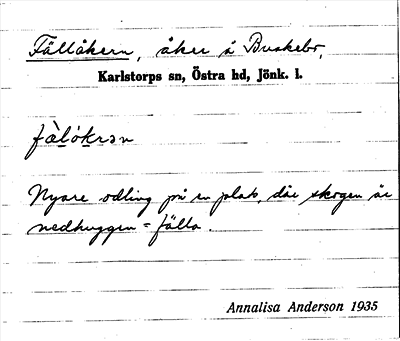 Fällåkern, åker å Buskebo,
Karlstorps sn, Östra hd, Jönk. l.
fä̀lòkrən
Nyare odling på en plats, där skogen är
nedhuggen = fälla.
Annalisa Anderson 1935